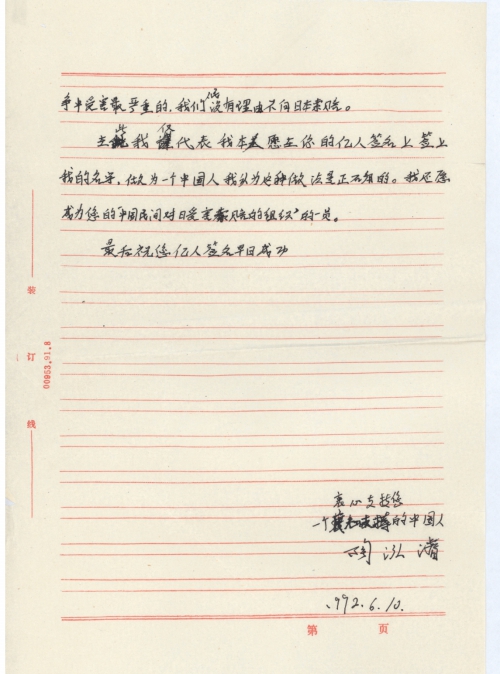 争中受害最严重的，我们没有理由不向日本索赔。
在此我仅代表我本人愿在你的亿人签名上签上
我的名字，做为一个中国人我认为这种做法是正确的。我还愿
成为您的“中国民间对日受害索赔的组织”的一员。
最后祝您亿人签名早日成功
衷心支持您
一个的中国人
泓
1992.6.10.
装
订
线
00953.91.8
第 页